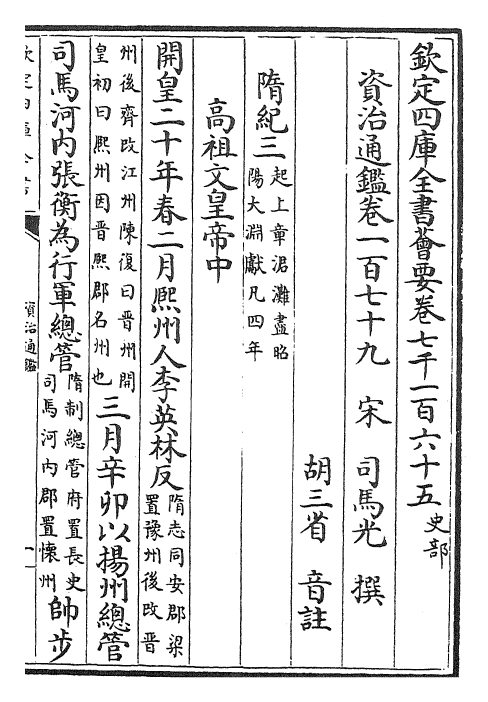 欽定四庫全書薈要卷七千一百六十五 史部
資治通鑑卷一百七十九 宋 司馬光 撰
胡三省 音註
隋紀三 起上章涒灘盡昭陽大淵獻凡四年
高祖文皇帝中
開皇二十年春二月熈州人李英林反 隋志同安郡梁置豫州後改晉
州後齊改江州陳復曰晉州開皇初曰熈州因晉熈郡名州也 三月辛卯以揚州總管
司馬河内張衡為行軍總管 隋制總管府置長史司馬河内郡置懷州 帥步
欽定四庫全書
資治通鑑
一